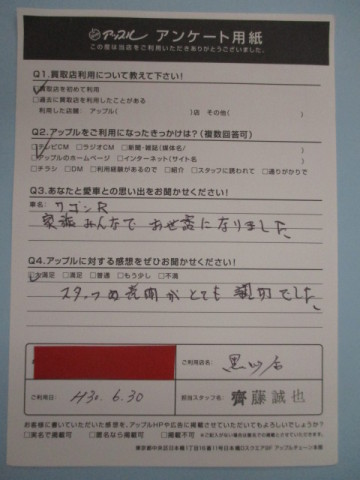 アップル アンケート用紙
この度は当店をご利用いただきありがとうございました。
Q1.買取店利用について教えて下さい!
☑買取店を初めて利用
□過去に買取店を利用したことがある
利用した店舗: アップル( )店 その他( )
Q2.アップルをご利用になったきっかけは?(複数回答可)
☑テレビCM □ラジオCM □新聞・雑誌(媒体名/ )
☑アップルのホームページ □インターネット(サイト名 )
□チラシ □DM □利用経験があるので □紹介 □スタッフに誘われて □通りがかりで
Q3.あなたと愛車との思い出をお聞かせください!
車名: ワゴンR
家族みんなでお世話になりました。
Q4.アップルに対する感想をぜひお聞かせください!
☑大満足 □満足 □普通 □もう少し □不満
スタッフの長岡がとても親切でした。
ご利用店名:
ご利用日: H30.6.30
担当スタッフ名: 齊藤誠也
お客様に書いていただいた感想を、アップルHPや広告に掲載させていただいてもよろしいでしょうか?
□実名で掲載可 □匿名なら掲載可 □掲載不可
東京都中央区日本橋1丁目19番11号日本橋DスクエアBF アップルチェーン本部